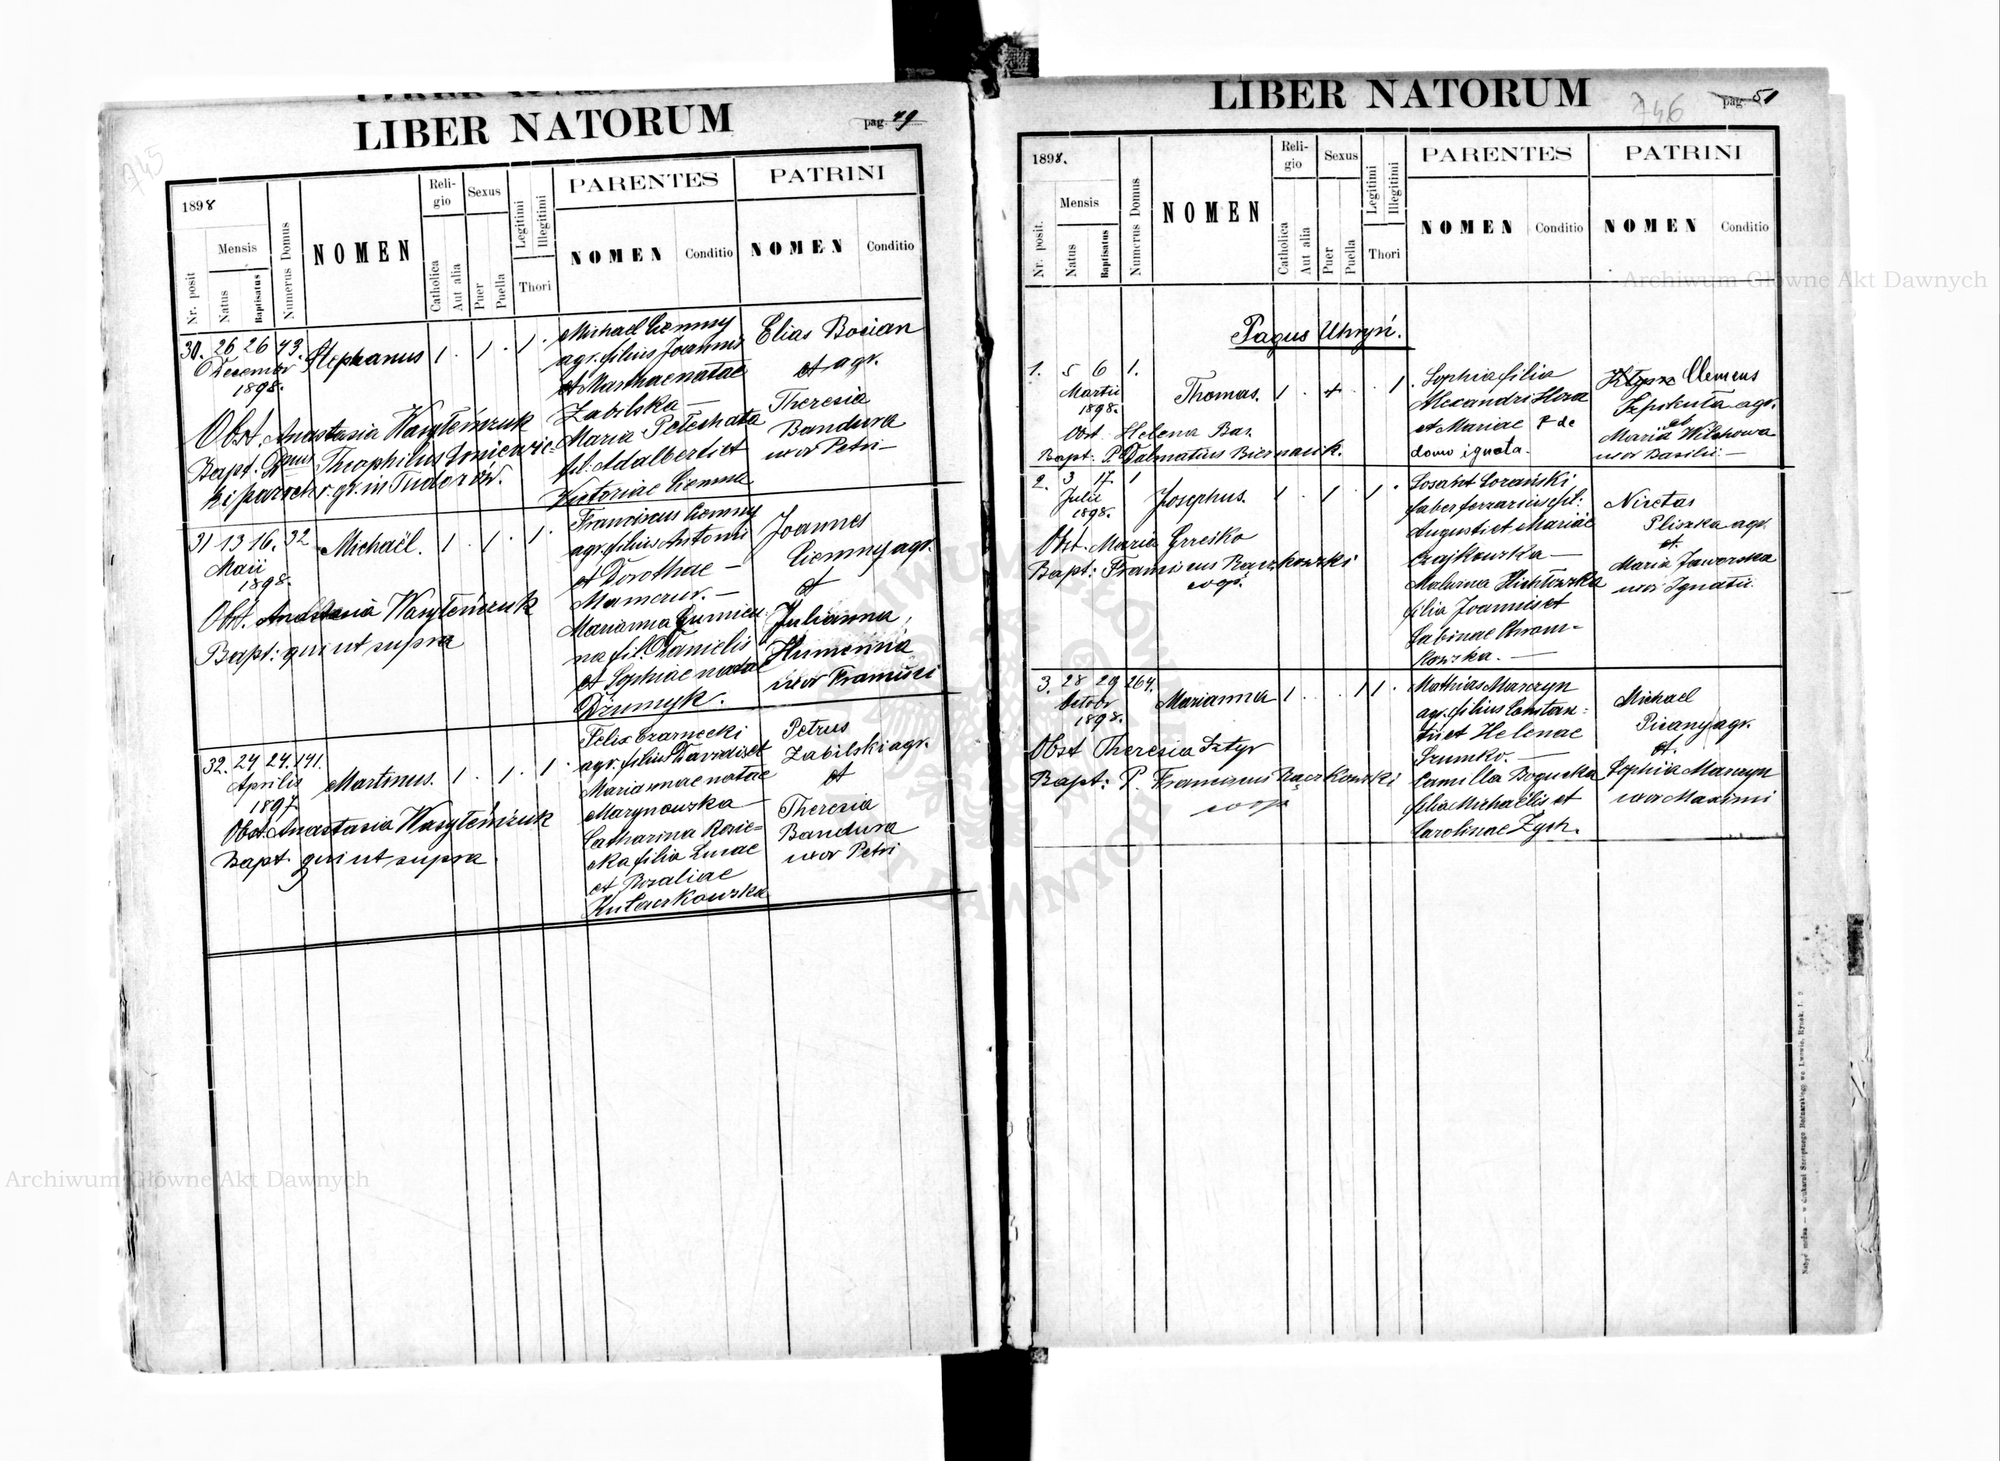 LIBER NATORUM
pag. 49
745
1898
Nr. posit
Mensis
Natus
Baptisatus
Numerus Domus
NOMEN
Reli-
gio
Catholica
Aut alia
Sexus
Puer
Puella
Legitimi
Illegitimi
Thori
PARENTES
NOMEN
Conditio
PATRINI
NOMEN
Conditio
30. 26 26 43. Stephanus 1 . 1 . 1 .
Decembr
1898.
Obst. Anastasia Wasyleńczuk
Bapt. Theophilus
parochr. gr. in Tudorów.
Michael Ciemny
agr. filius Joannis
et Marthae natae
Zabilska —
Maria Peleshata
fil. Adalberti et
Victoriae Ciemna
Elias Bosian
et agr.
Theresia
Bandura
uxor Petri —
31 13 16. 32 Michaël. 1 . 1 . 1 .
Maii
1898.
Obst. Anastasia Wasyleńczuk
Bapt: qui ut supra
Franciscus Ciemny
agr. filius Antonii
et Dorothae —
Marianna
na fil. Danielis
et Sophiae natae
Dżumyk.
Joannes
Ciemny agr.
et
Julianna
Humenna
uxor Francisci
32. 24 24. 141. Martinus. 1 . 1 . 1 .
Aprilis
1897
Obst. Anastasia Wasyleńczuk
Bapt. qui ut supra
Felix Czarnecki
agr. filius et
Mariannae natae
Marynowska
Catharina Rosic=
ka filia Lucae
et Rosaliae
Petrus
Zabilski agr.
et
Theresia
Bandura
uxor Petri
LIBER NATORUM
746
pag. 51
1898.
Nr. posit.
Mensis
Natus
Baptisatus
Numerus Domus
NOMEN
Reli-
gio
Catholica
Aut alia
Sexus
Puer
Puella
Legitimi
Illegitimi
Thori
PARENTES
NOMEN
Conditio
PATRINI
NOMEN
Conditio
Pagus Uhryń.
1. 5 6 1. Thomas. 1 . 1 . . 1 .
Martii
1898.
Obst. Helena Bar.
Bapt: P. Dalmatius Biernacik.
Sophia filia
Alexandri
et Mariae de
domo ignota.
Clemens
Szpikuła agr.
et
Maria Wilchowa
uxor Basilii —
2. 3 17. 1 Josephus. 1 . 1 . 1 .
Julii
1898.
Obst. Maria Hreśko
Bapt: Franciscus Raczkowski
coop.
faber ferrarius fil.
Augusti et Mariae
Czajkowska —
Malwina
filia Joannis et
Sabinae Chrom-
kowska. —
Nicetas
Pliszka agr.
et
Maria Jaworska
uxor Ignatii.
3. 28 29 264. Marianna 1 . . 1 1 .
Octobr
1898.
Obst Theresia Sztyr
Bapt: P. Franciscus Raczkowski
coop
Mathias Marzyn
agr. filius Constan=
tii et Helenae
Szumko. —
Camilla Bogucka
filia Michaëlis et
Carolinae Zych.
Michael
Pisany agr.
et
Sophia Marzyn
uxor Maximi
Nabyć można — w drukarni Szczęsnego Bednarskiego we Lwowie, Rynek l. 9
Archiwum Główne Akt Dawnych
Archiwum Główne Akt Dawnych